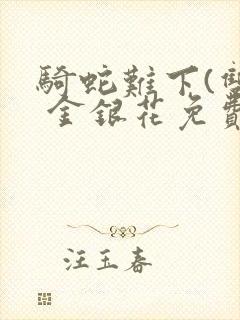 騎蛇難下(雙
金銀花免費
汪玉春